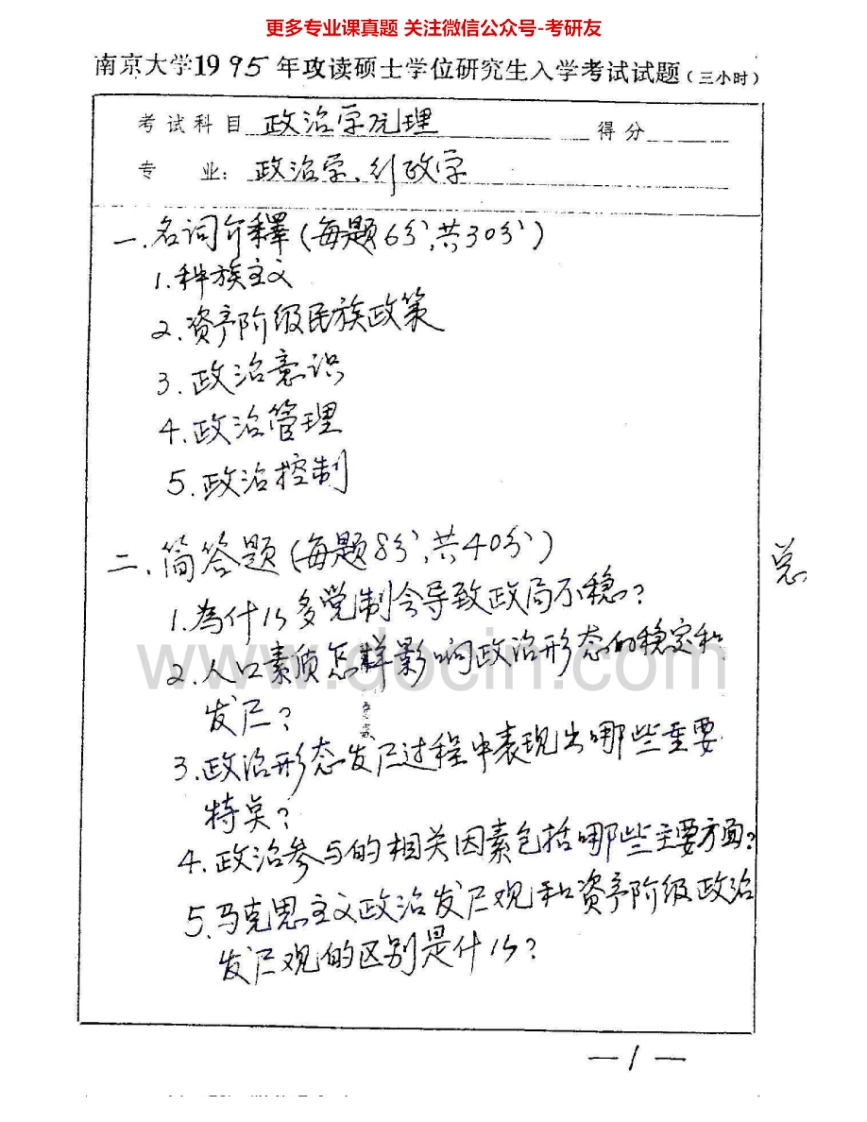 更多专业课真题 关注微信公众号-考研友
南京大学1995年攻读硕士学位研究生入学考试试题(三小时)
考试科目 政治学原理 得分
专 业: 政治学、行政学
一、名词介釋(每题6分,共30分)
1.种族主义
2.资产阶级民族政策
3.政治意识
4.政治管理
5.政治控制
二、简答题(每题8分,共40分)
1.為什么多党制会导致政局不稳?
2.人口素质怎样影响政治形态的稳定和
发展?
3.政治形态发展过程中表现出哪些重要
特点?
4.政治参与的相关因素包括哪些主要方面?
5.马克思主义政治发展观和资产阶级政治
发展观的区别是什么?
www.docin.com
—1—